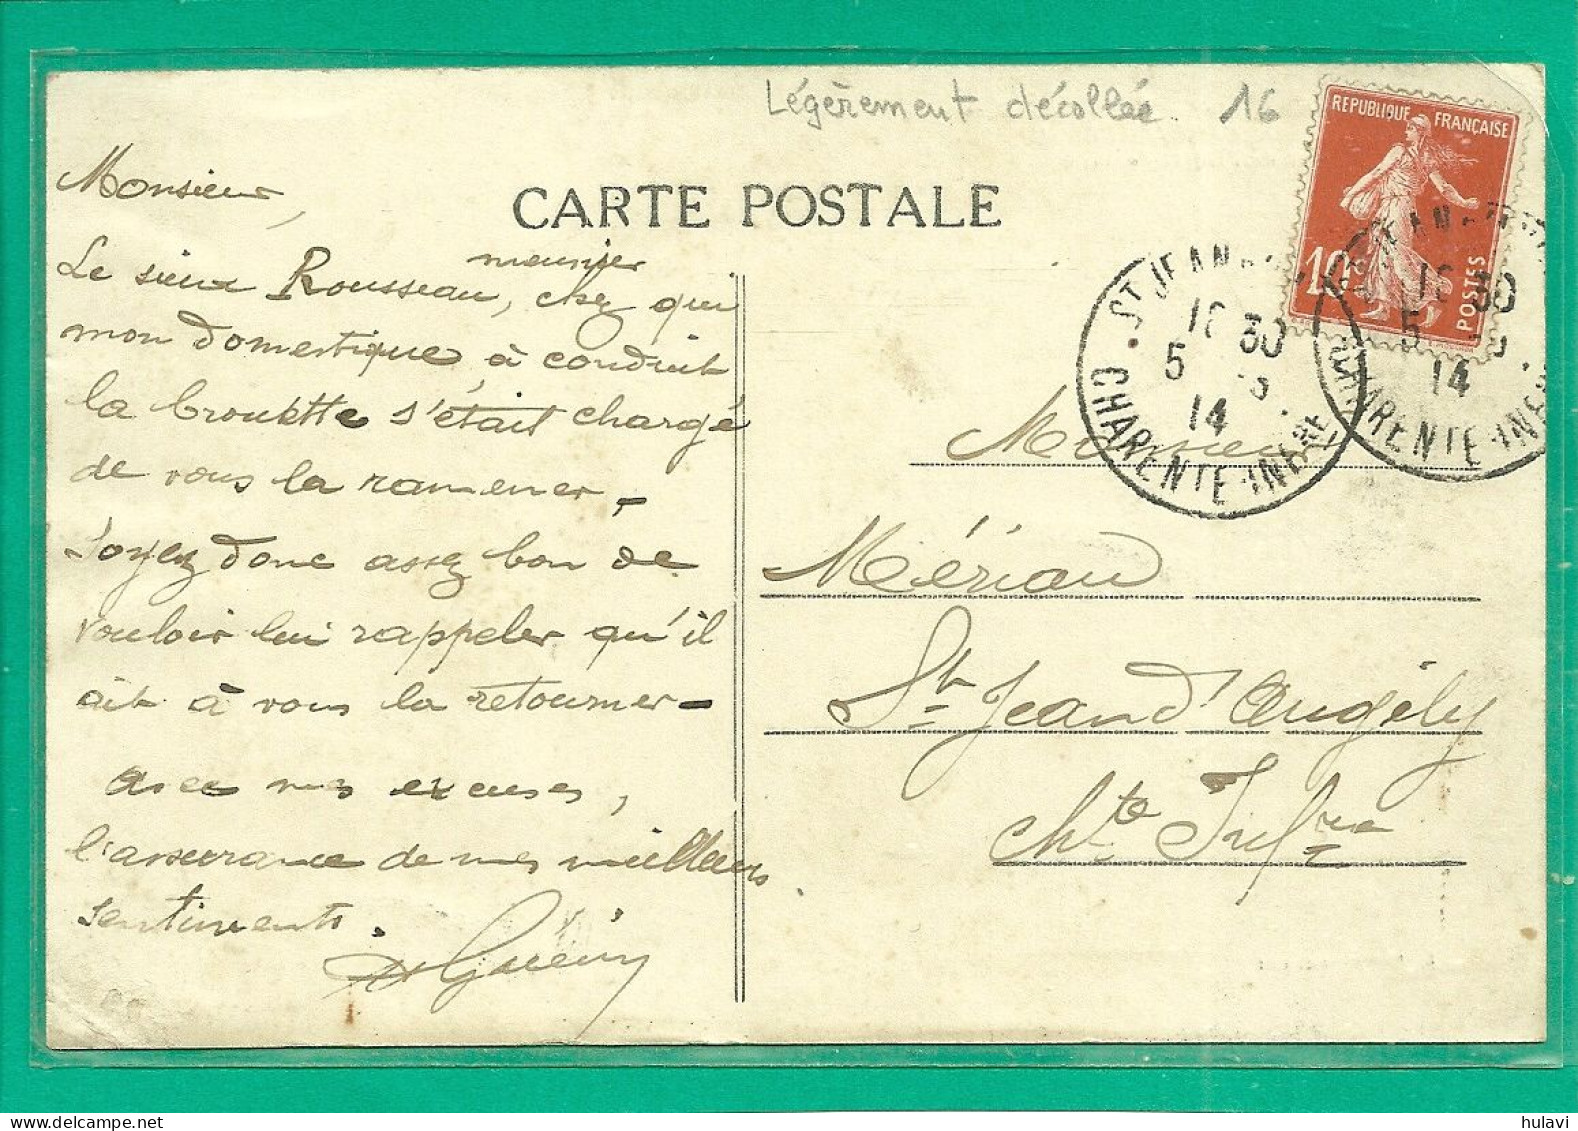 Légèrement décollée 16
CARTE POSTALE
Monsieur,
meunier
Le sieur Rousseau, chez qui
mon domestique à conduit
la brouette s'était chargé
de vous la ramener -
Soyez donc assez bon de
vouloir lui rappeler qu'il
ait à vous la retourner -
avec mes excuses,
l'assurance de mes meilleurs
sentiments.
Guérin
REPUBLIQUE FRANÇAISE
10c
POSTES
ST JEAN
30
5
14
CHARENTE-INFRE
JEAN
30
5
14
CHARENTE-INF
Monsieur
Mériau
St Jean d'Angély
Chte Infre
hulavi